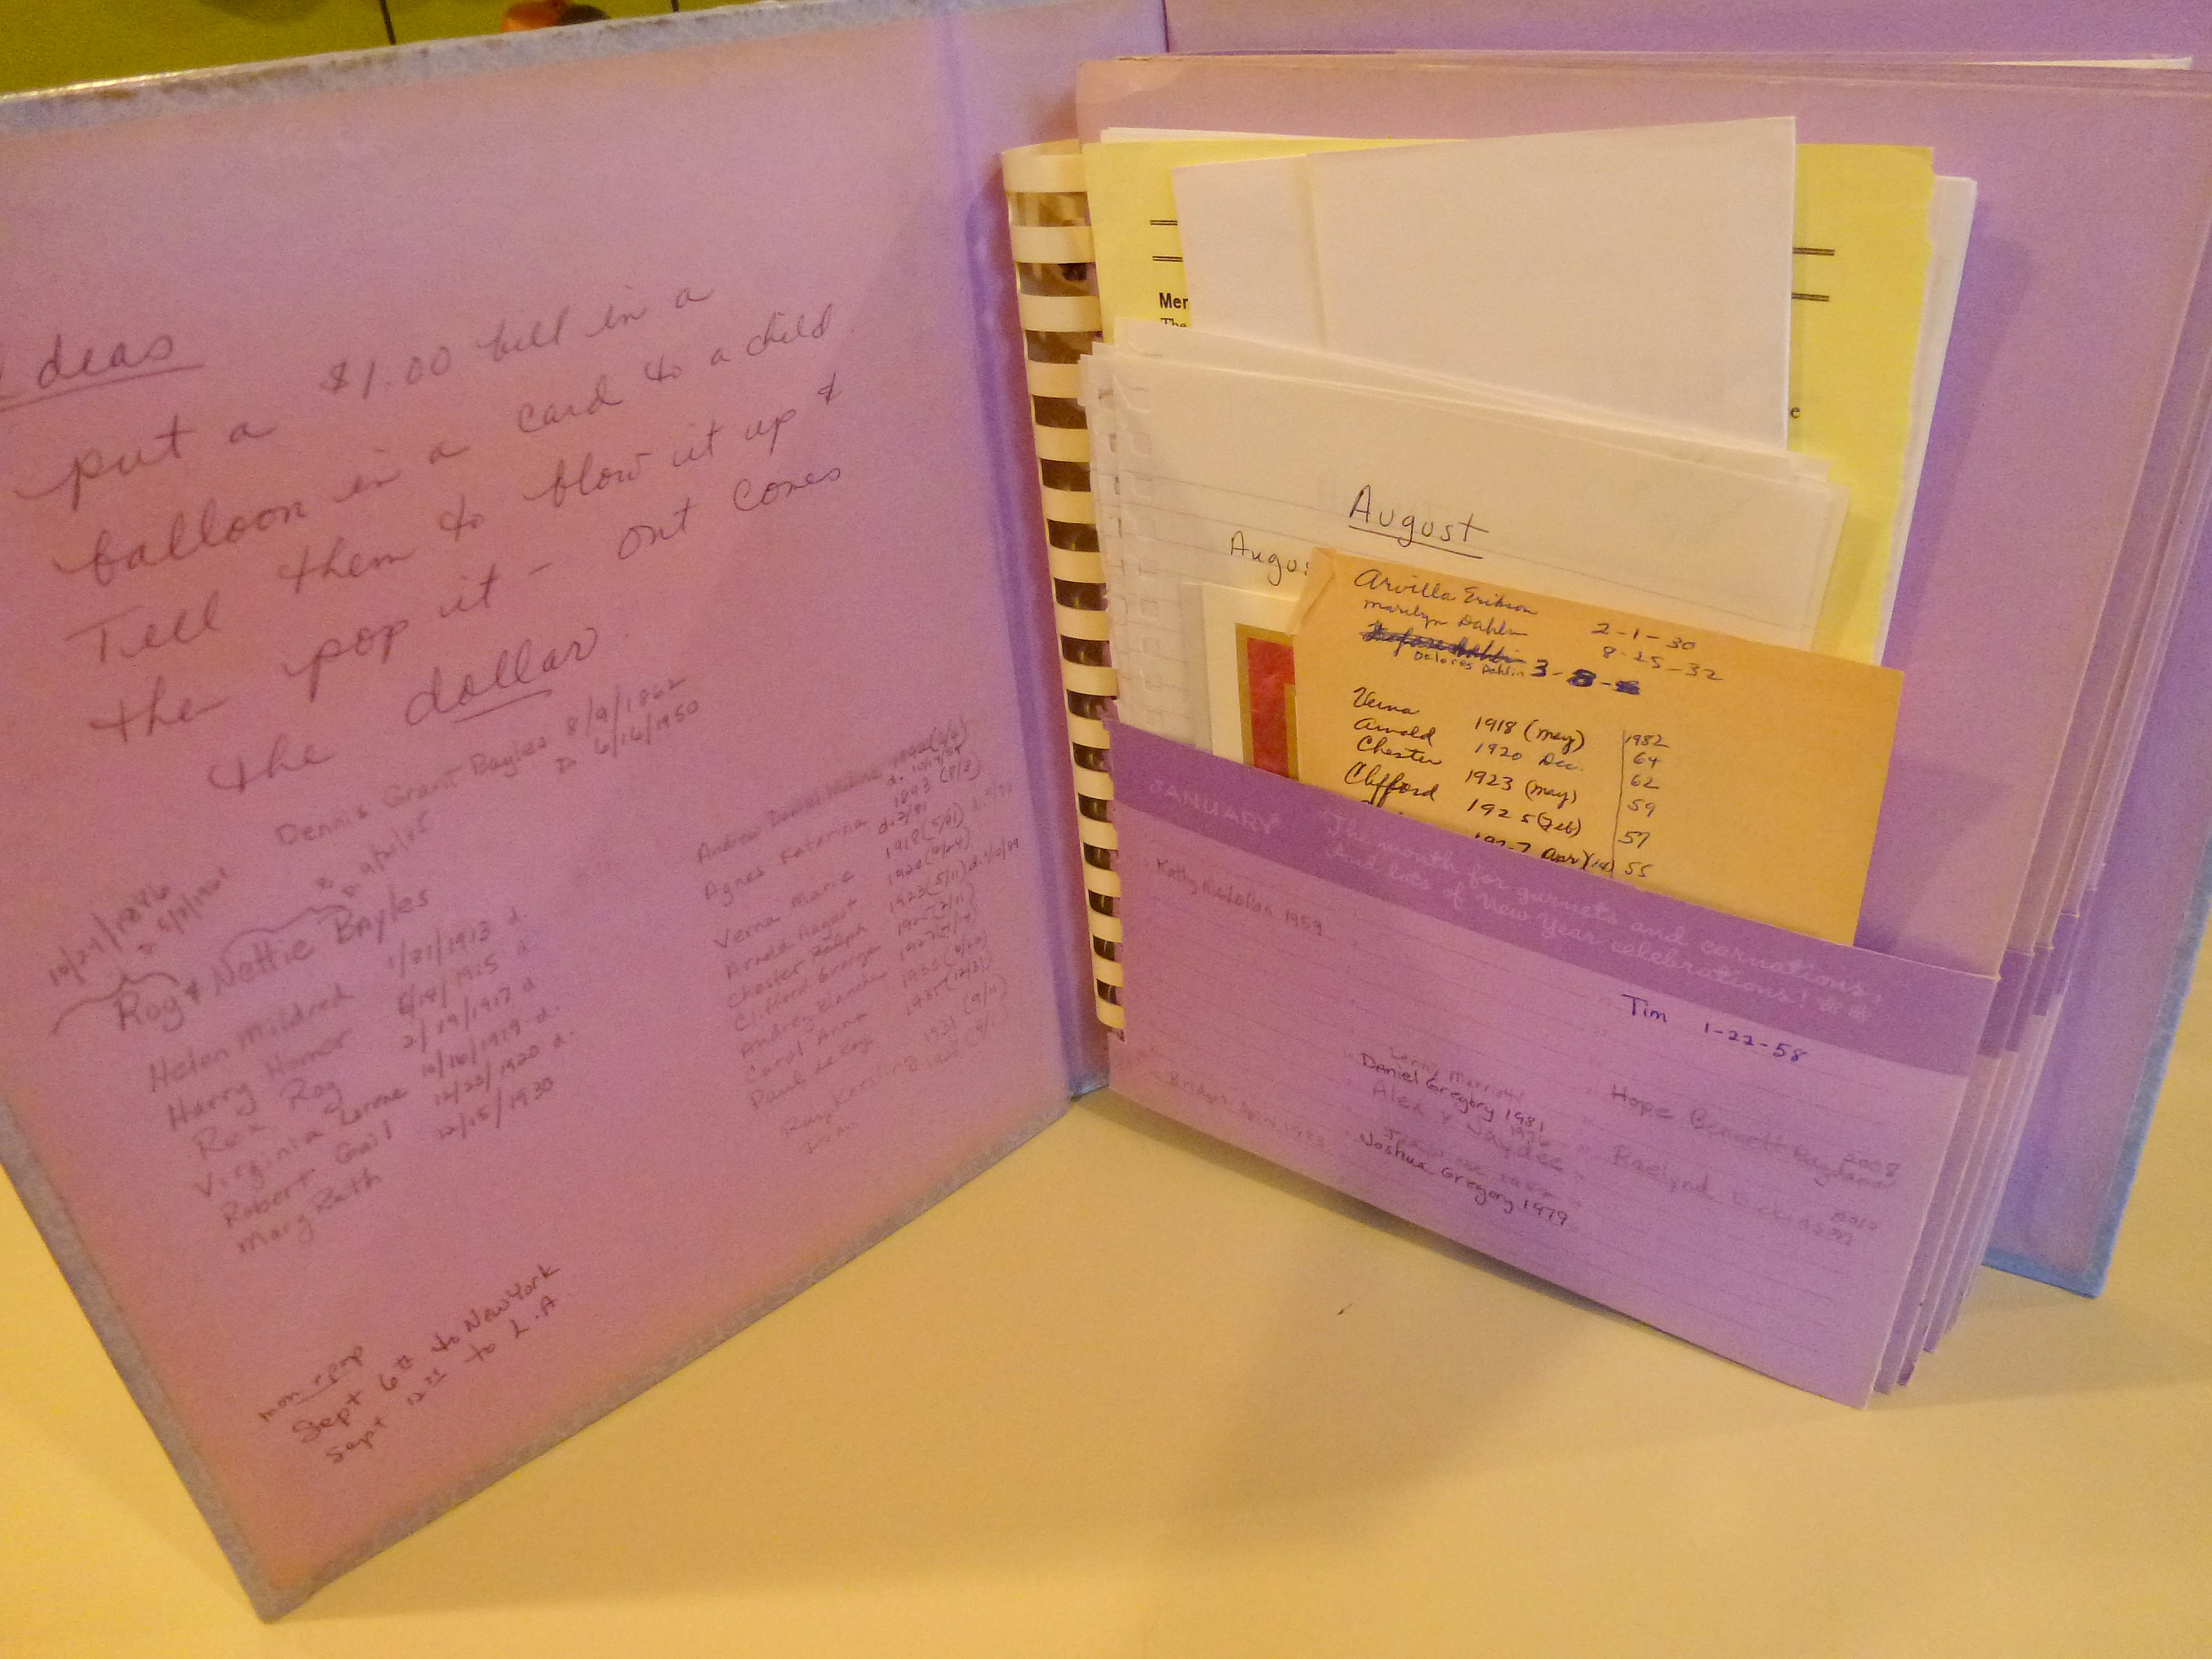 Ideas
put a $1.00 bill in a
balloon in a card to a child.
Tell them to blow it up &
then pop it - out comes
the dollar.
Dennis Grant Bayles 8/9/1862
D 6/16/1950
10/29/1886
Roy & Nettie Bayles
Helen Mildred 1/21/1913 d.
Harry Homer 6/14/1915 d.
Rex Roy 2/19/1917 d
Virginia Lorene 10/16/1919 d.
Robert Gail 12/23/1920 d.
Mary Ruth 12/15/1930
Andrew Daniel
Agnes Katerina 1893 (8/3)
Verna Marie 1918
Arnold August 1920
Chester Ralph 1923 (5/11)
Clifford George 1925
1927
Carol Anna
Paul LeRoy 1935 (12/31)
Ray Kersling 1931 (9/11)
mom & pop
Sept 6th to New York
Sept 12th to L.A
Mer
The
e
August
Augus
Arvilla Erikson 2-1-30
Marilyn Dahlin 8-25-32
Delores Dahlin 3-8-
Verna 1918 (may) 1982
Arnold 1920 Dec. 64
Chester 1923 (may) 62
Clifford 1925 (Feb) 59
57
1927 Apr 55
JANUARY The month for garnets and carnations,
And lots of New Year celebrations!
Kathy 1959
Tim 1-22-58
Daniel Gregory 1981
Hope Bennett 2008
Alex & Jaydee
Raelynd
Joshua Gregory 1979